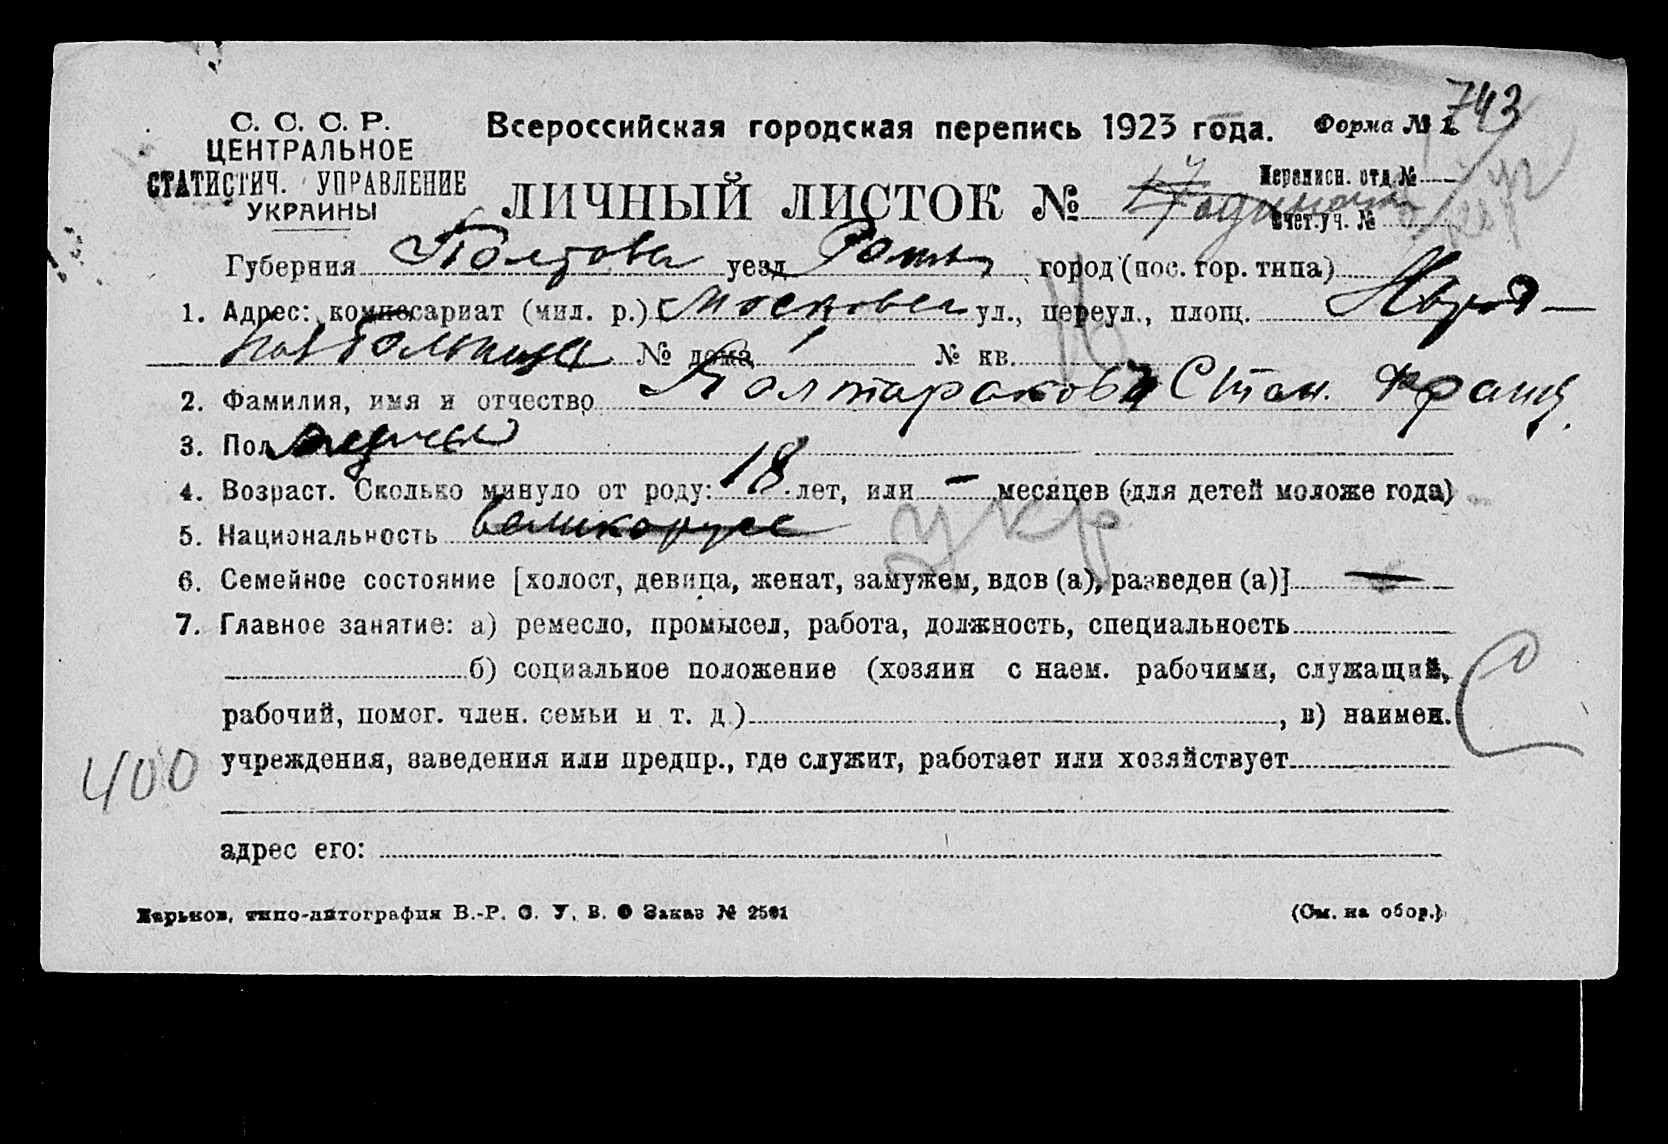 743
С. С. С. Р.
ЦЕНТРАЛЬНОЕ
СТАТИСТИЧ. УПРАВЛЕНИЕ
УКРАИНЫ
Всероссийская городская перепись 1923 года. Форма № 1.
ЛИЧНЫЙ ЛИСТОК №
Переписн. отд. №
Счет. уч. №
Губерния Полтова уезд город (пос. гор. типа)
1. Адрес: комиссариат (мил. р.) ул., переул., площ.
№ дома № кв.
2. Фамилия, имя и отчество Полтаракова Стан. Франц.
3. Пол
4. Возраст. Сколько минуло от роду: 18 лет, или – месяцев (для детей моложе года)
5. Национальность великорусс укр
6. Семейное состояние [холост, девица, женат, замужем, вдов (а), разведен (а)] —
7. Главное занятие: а) ремесло, промысел, работа, должность, специальность
б) социальное положение (хозяин с наем. рабочими, служащий,
рабочий, помог. член. семьи и т. д.) , в) наимен.
учреждения, заведения или предпр., где служит, работает или хозяйствует
400
адрес его:
Харьков, типо-литография В.-Р. С. У. В. О Заказ № 2501
(См. на обор.)